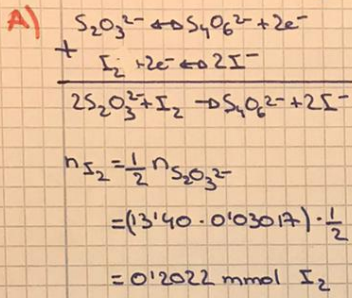 A)
S₂O₃²⁻ ↔ S₄O₆²⁻ + 2e⁻
+
I₂ + 2e⁻ ↔ 2I⁻
2S₂O₃²⁻ + I₂ → S₄O₆²⁻ + 2I⁻
n I₂ = 1/2 n S₂O₃²⁻
= (13'40 · 0'03017) · 1/2
= 0'2022 mmol I₂